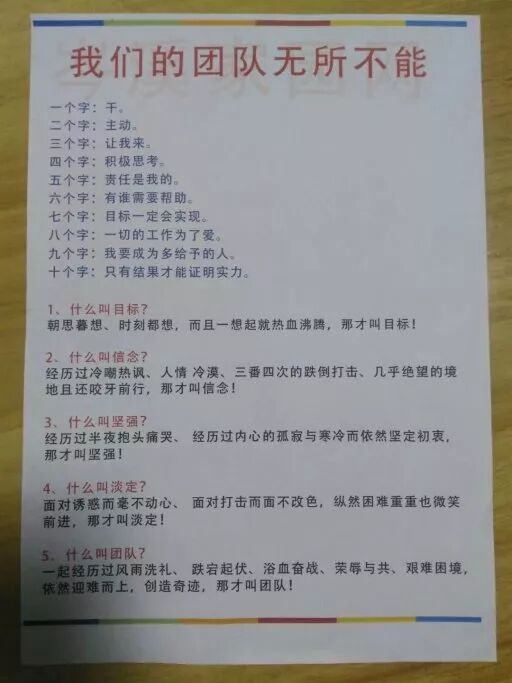 我们的团队无所不能
一个字：干。
二个字：主动。
三个字：让我来。
四个字：积极思考。
五个字：责任是我的。
六个字：有谁需要帮助。
七个字：目标一定会实现。
八个字：一切的工作为了爱。
九个字：我要成为多给予的人。
十个字：只有结果才能证明实力。
1、什么叫目标？
朝思暮想、时刻都想，而且一想起就热血沸腾，那才叫目标！
2、什么叫信念？
经历过冷嘲热讽、人情 冷漠、三番四次的跌倒打击、几乎绝望的境
地且还咬牙前行，那才叫信念！
3、什么叫坚强？
经历过半夜抱头痛哭、 经历过内心的孤寂与寒冷而依然坚定初衷，
那才叫坚强！
4、什么叫淡定？
面对诱惑而毫不动心、 面对打击而面不改色，纵然困难重重也微笑
前进，那才叫淡定！
5、什么叫团队？
一起经历过风雨洗礼、 跌宕起伏、浴血奋战、荣辱与共、艰难困境，
依然迎难而上，创造奇迹，那才叫团队！